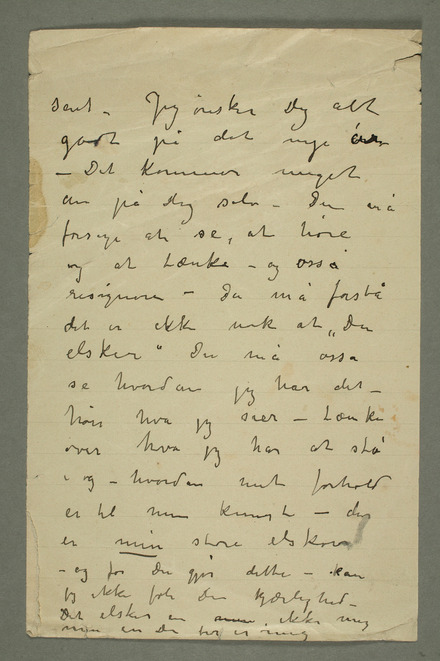 sent – Jeg ønsker Dig alt
godt på det nye
– Det kommer meget
an på Dig selv – Du må
forsøge at se, at høre
og at tænke – og også
resignere – Du må forstå
det er ikke nok at „Du
elsker" Du må osså
se hvordan jeg har det –
høre hva jeg sier – tænke
over hva jeg har at stå
i og – hvordan mit forhold
er til min kunst – den
er min store elskov
– og før Du gjør dette – kan
jeg ikke føle Din kjærlighed –
Det elsker en ikke mig